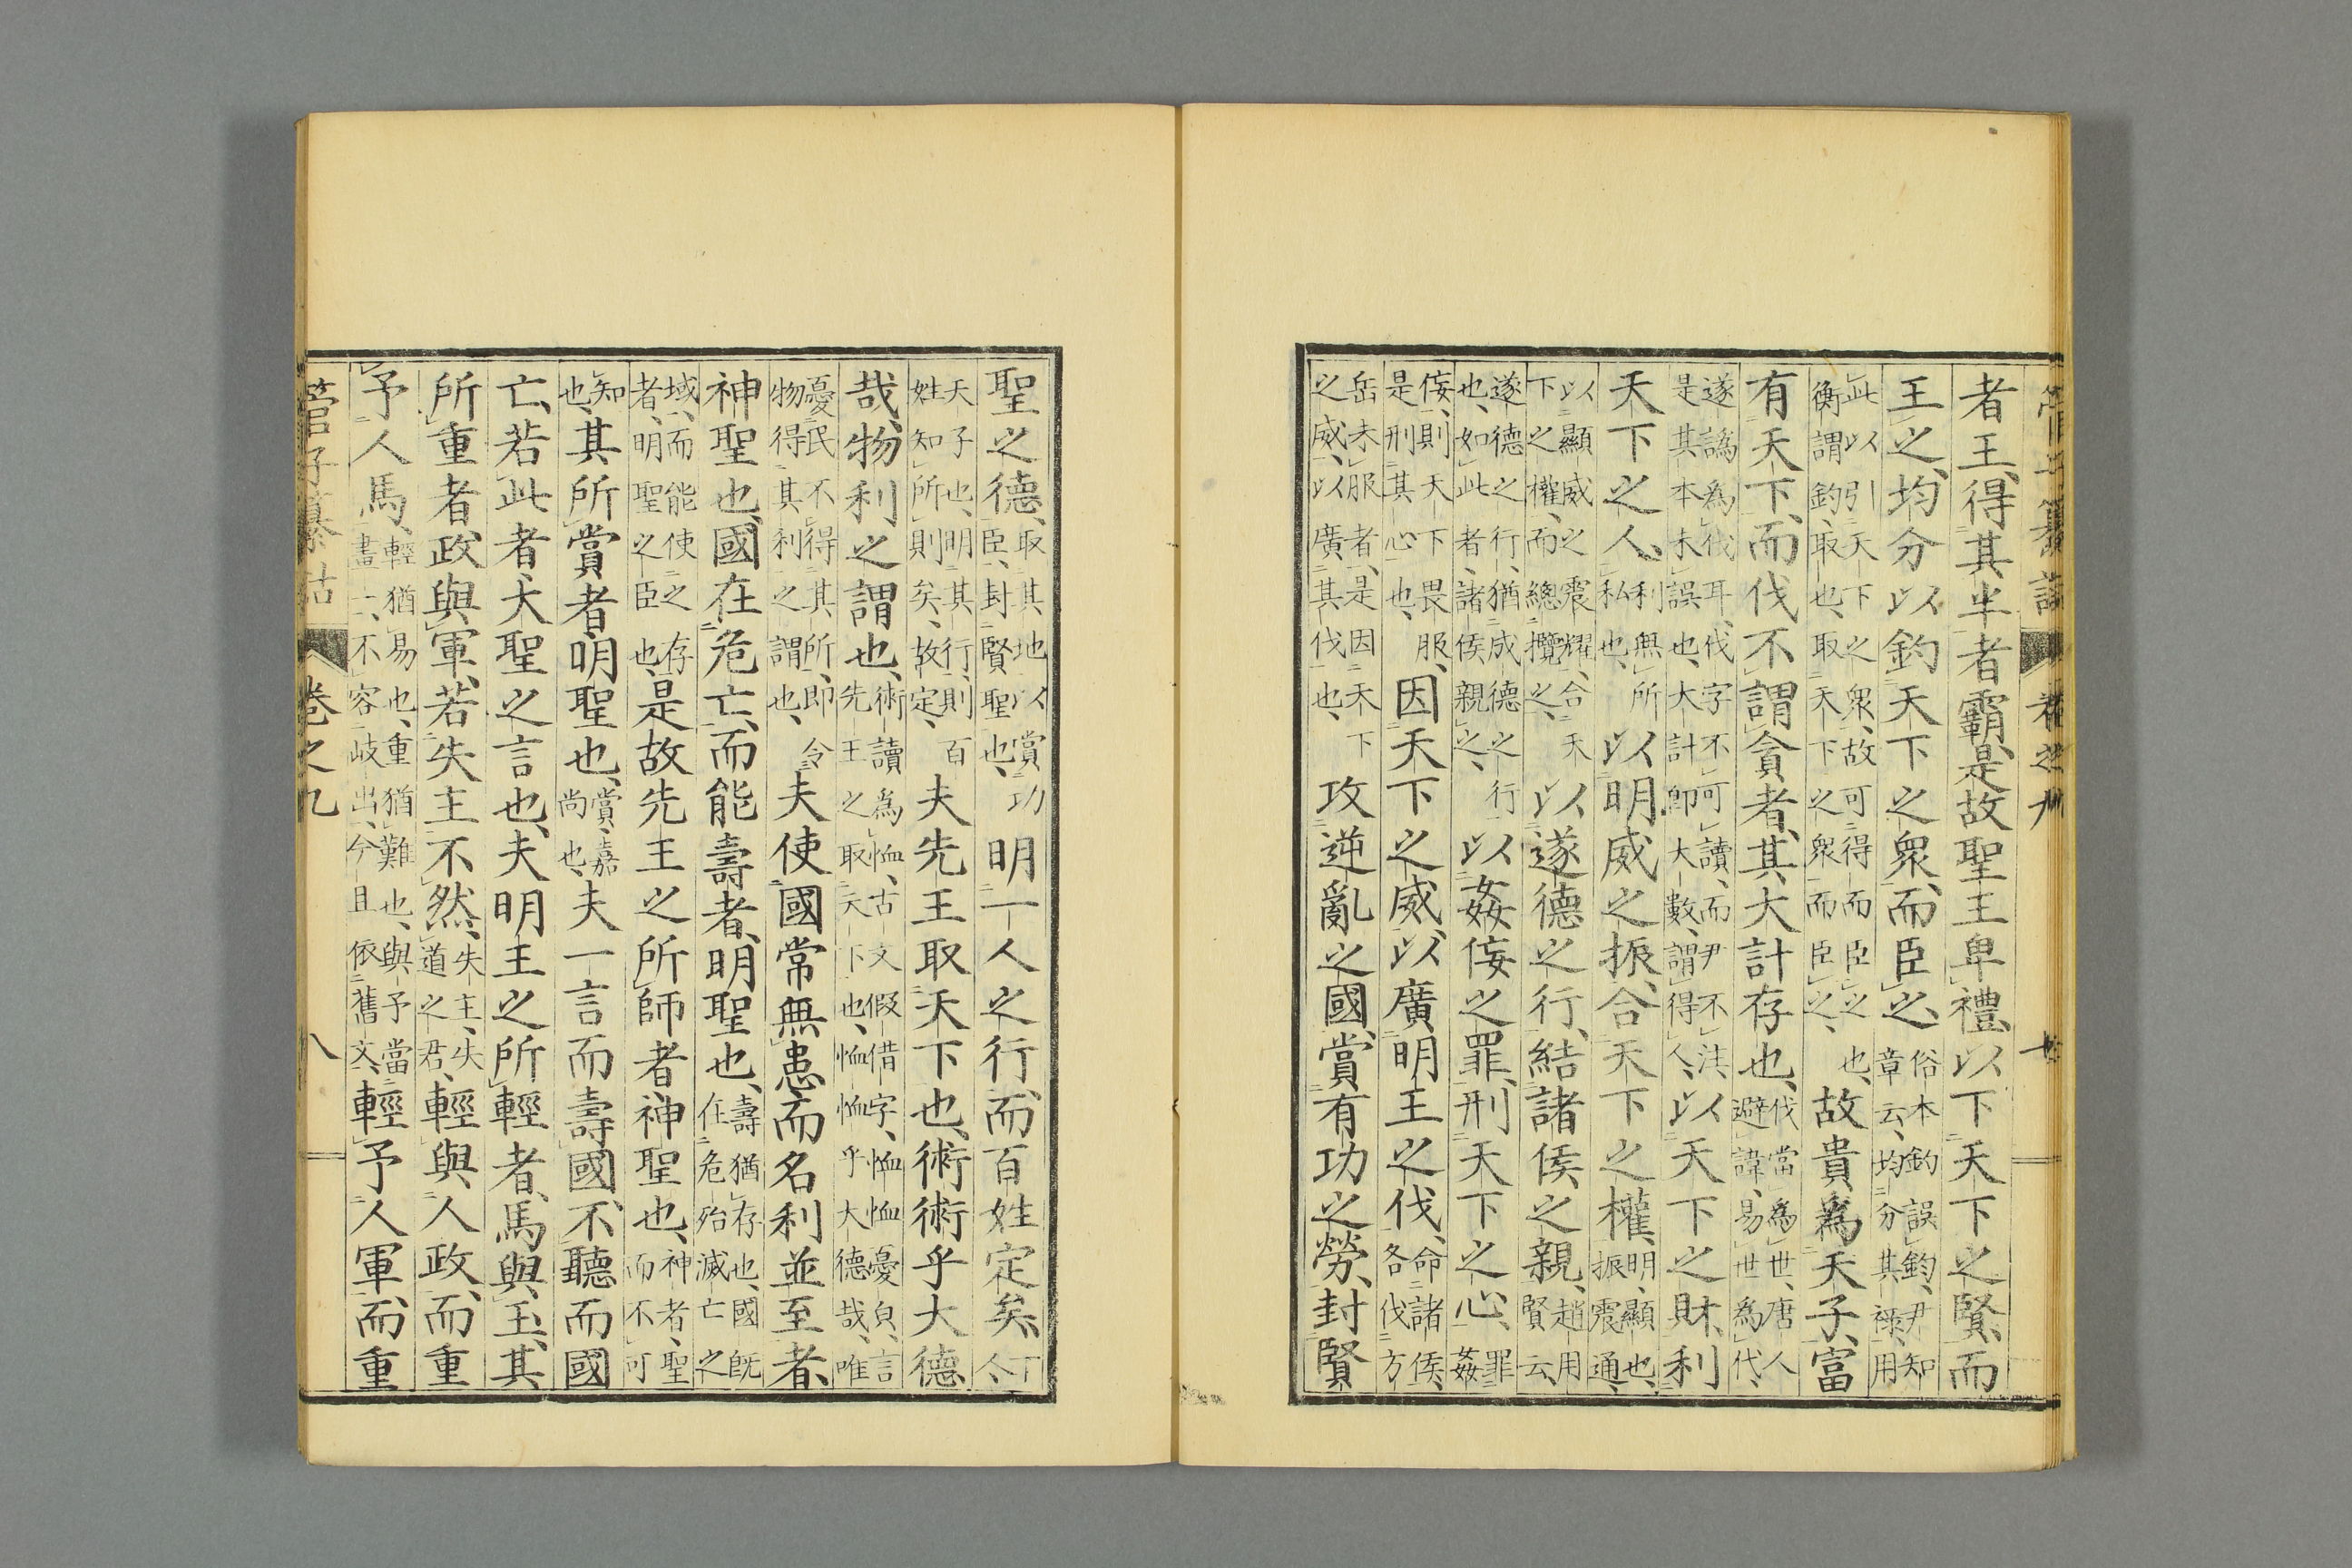 者王、得其半者霸、是故聖王卑禮、以下天下之賢、而
王之、均分以釣天下之衆、而臣之、俗本釣誤鈞、尹知章云、均分其祿、用
此以引天下之衆、故可得而臣之也、衡謂釣、取也、取天下之衆而臣之、故貴爲天子、富
有天下、而伐不謂貪者、其大計存也、伐當爲世、唐人避諱、易世爲代、
遂譌爲伐耳、伐字不可讀、而尹不注、是其本未誤也、大計卽大數、謂得人、以天下之財、利
天下之人、利無所私也、以明威之振、合天下之權、明、顯也、振、震通、
以顯威之震耀、合天下之權、而總攬之、以遂德之行、結諸侯之親、趙用賢云、
遂德之行、猶成德之行也、如此者、諸侯親之、以姦佞之罪、刑天下之心、罪姦
佞、則天下畏服、是刑其心也、因天下之威、以廣明王之伐、命諸侯、各伐方
岳未服者、是因天下之威、以廣其伐也、攻逆亂之國、賞有功之勞、封賢
聖之德、取其地以賞功臣、封賢聖也、明一人之行、而百姓定矣、一人、
天子也、明其行、則百姓知所則矣、故定、夫先王取天下也、術術乎大德
哉、物利之謂也、術讀爲恤、古文假借字、恤恤憂貞、言先王之取天下也、恤恤乎大德哉、唯
憂民不得其所、卽物得其利之謂也、令夫使國常無患、而名利並至者、
神聖也、國在危亡、而能壽者、明聖也、壽猶存也、國既在危殆滅亡之
域、而能使之存者、明聖之臣也、是故先王之所師者、神聖也、神者、聖而不可
知也、其所賞者、明聖也、賞、嘉尚也、夫一言而壽國、不聽而國
亡、若此者、大聖之言也、夫明王之所輕者、馬與玉、其
所重者、政與軍、若失主不然、失主、失道之君、輕與人政、而重
予人馬、輕猶易也、重猶難也、與予當畫一、不容岐出、今且依舊文、輕予人軍、而重
管子纂詁 卷之九 八